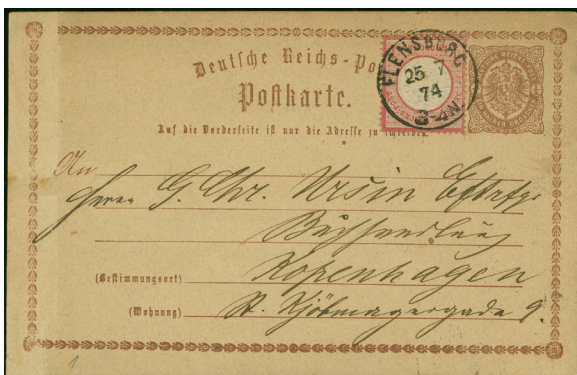 Deutsche Reichs-Po
Postkarte.
Auf die Vorderseite ist nur die Adresse zu schreiben.
FLENSBURG
25 7
74
3-4N
An
Herrn G. Chr. Ursin Eftrfgr
Buchhandlung
(Bestimmungsort) Kopenhagen
(Wohnung) St. Kjöbmagergade 9.
1